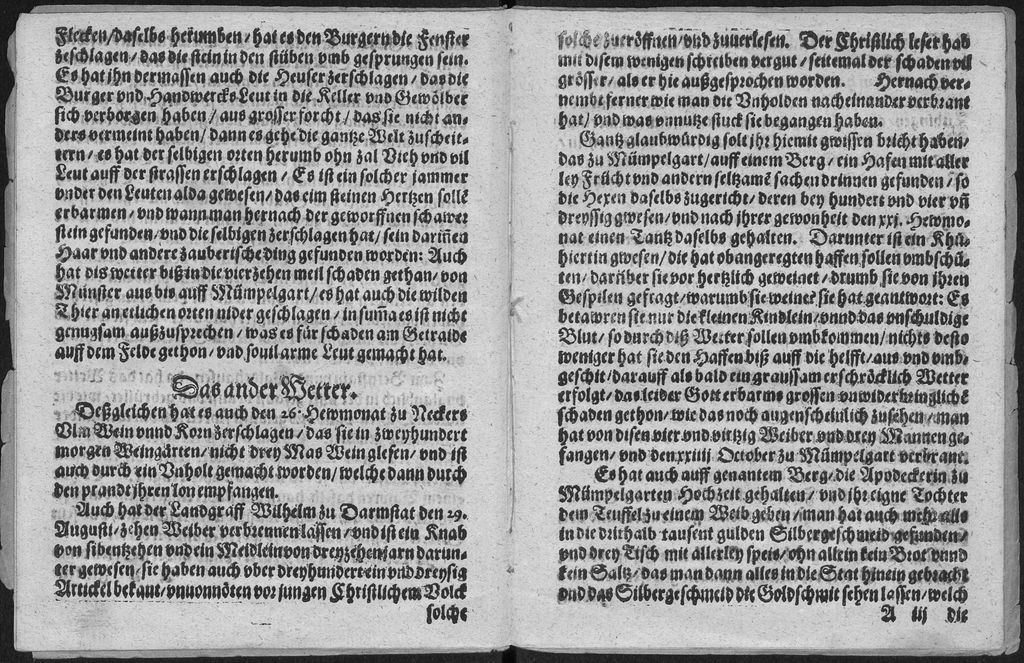 Flecken/daselbs herumben/hat es den Burgern die Fenster
zeschlagen/das die stein in den stüben vmb gesprungen sein.
Es hat ihn dermassen auch die Heuser zerschlagen/das die
Burger vnd Handwercks Leut in die Keller vnd Gewölber
sich verborgen haben/aus grosser forcht/das sie nicht an-
ders vermeint haben/dann es gehe die gantze Welt zuscheit-
tern/es hat der selbigen orten herumb ohn zal Vieh vnd vil
Leut auff der strassen erschlagen/Es ist ein solcher jammer
vnder den Leuten alda gewesen/das eim steinen Hertzen solle̅
erbarmen/vnd wann man hernach der geworffnen schawer
stein gefunden/vnd die selbigen zerschlagen hat/sein dariñen
Haar vnd andere zauberische ding gefunden worden: Auch
hat dis wetter biß in die vierzehen meil schaden gethan/von
Münster aus bis auff Mümpelgart/es hat auch die wilden
Thier an etlichen orten nider geschlagen/in sum̃a es ist nicht
genugsam außzusprechen/was es für schaden am Getraide
auff dem Felde gethon/vnd souil arme Leut gemacht hat.
Das ander Wetter.
Deßgleichen hat es auch den 26. Hewmonat zu Neckers
Vlm Wein vnnd Korn zerschlagen/das sie in zweyhundert
morgen Weingärten/nicht drey Mas Wein glesen/vnd ist
auch durch ein Vnholt gemacht worden/welche dann durch
den prandt jhren lon empfangen.
Auch hat der Landgräff Wilhelm zu Darmstat den 29.
Augusti/zehen Weiber verbrennen lassen/vnd ist ein Knab
von sibentzehen vnd ein Meidlein von dreyzehen jarn darun-
ter gewesen/sie haben auch vber dreyhundert ein vnd dreysig
Artickel bekant/vnuonnöten vor jungen Christlichem Volck
solche
solche zueröffnen/vnd zuuerlesen. Der Christlich leser hab
mit disem wenigen schreiben vergut/seitemal der schaden vil
grösser/als er hie außgesprochen worden. Hernach ver-
nembt ferner wie man die Vnholden nacheinander verbrant
hat/vnd was vnnutze stuck sie begangen haben.
Gantz glaubwürdig solt jhr hiemit gwissen bricht haben/
das zu Mümpelgart/auff einem Berg/ein Hafen mit aller
ley Frücht vnd andern seltzamē sachen drinnen gefunden/so
die Hexen daselbs zugericht/deren bey hundert vnd vier vñ
dreyssig gwesen/vnd nach jhrer gewonheit den xxj. Hewmo-
nat einen Tantz daselbs gehalten. Darunter ist ein Khü-
hiertin gwesen/die hat obangeregten haffen sollen vmbschü-
ten/darüber sie vor hertzlich geweinet/drumb sie von jhren
Gespilen gefragt/warumb sie weine? sie hat geantwort: Es
betawren sie nur die kleinen Kindlein/vnnd das vnschuldige
Blut/so durch diß Wetter sollen vmbkommen/nichts desto
weniger hat sie den Haffen biß auff die helfft/aus vnd vmb-
geschit/darauff als bald ein graussam erschröcklich Wetter
erfolgt/das leider Gott erbarms grossen vnwiderbringlichē
schaden gethon/wie das noch augenscheinlich zusehen/man
hat von disen vier vnd virtzig Weiber vnd drey Mannen ge-
fangen/vnd den xxiiij October zu Mümpelgart verbrant.
Es hat auch auff genantem Berg/die Apodeckerin zu
Mümpelgarten Hochzeit gehalten/vnd jhr eigne Tochter
dem Teuffel zu einem Weib geben/man hat auch mehr als
in die drithalb tausent gulden Silbergeschmeid gefunden/
vnd drey Tisch mit allerley speis/ohn allein kein Brot vnnd
kein Saltz/das man dann alles in die Stat hinein gebracht
vnd das Silbergeschmeid die Goldschmit sehen lassen/welch
A iij die